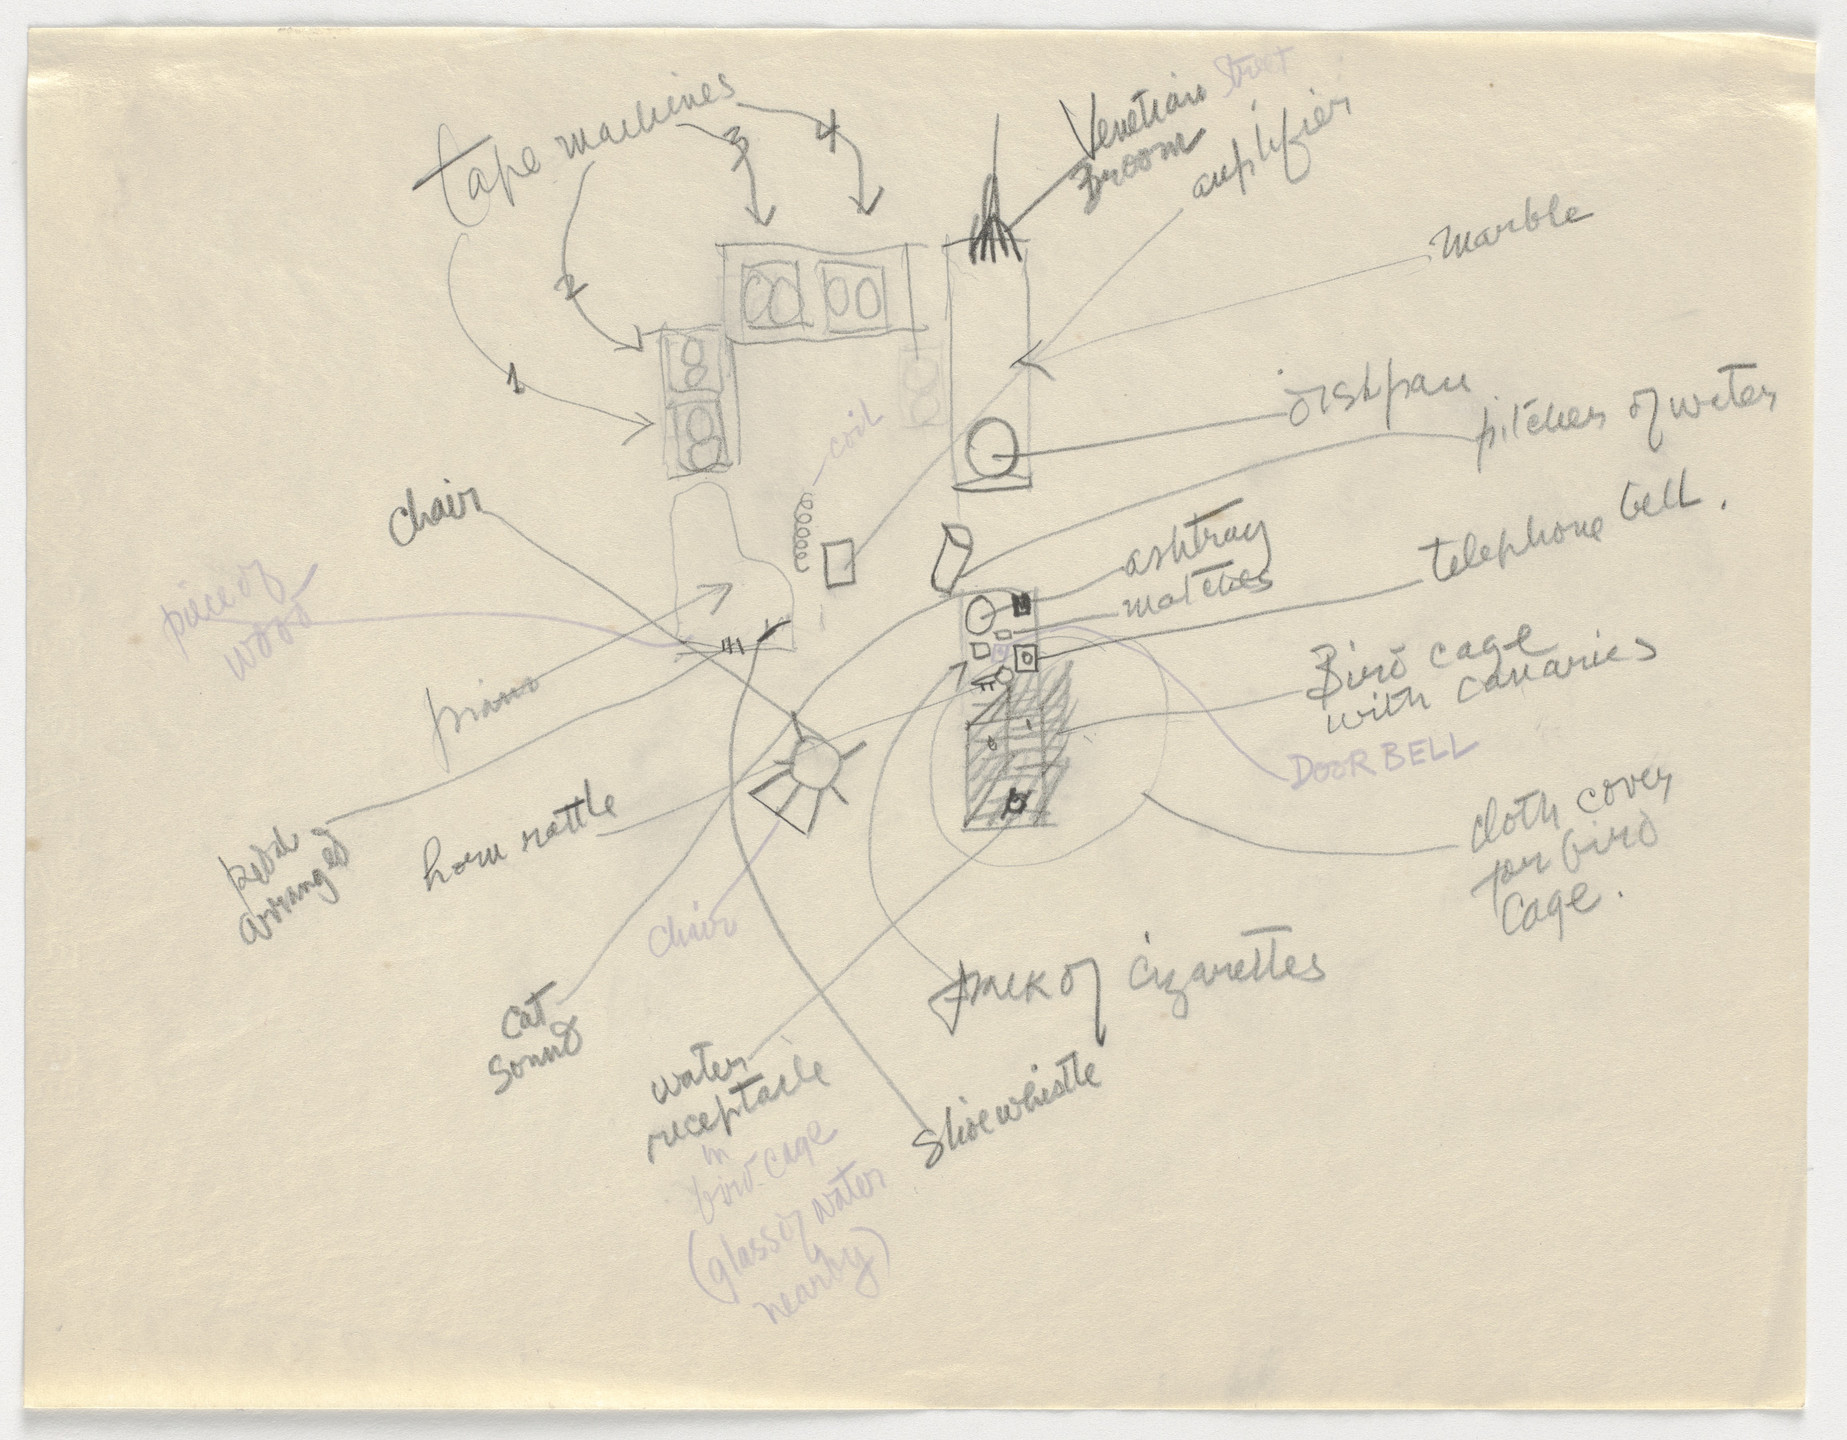 tape machines
1
2
3
4
Venetian Street
Broom
amplifier
marble
dishpan
pitcher of water
coil
chair
ashtray
matches
telephone bell.
piece of
wood
piano
Bird cage
with canaries
DOOR BELL
cloth cover
for bird
cage.
arranged
horn rattle
chair
cat
sound
pack of cigarettes
water
receptacle
in
bird-cage
(glass of water
nearby)
slide whistle